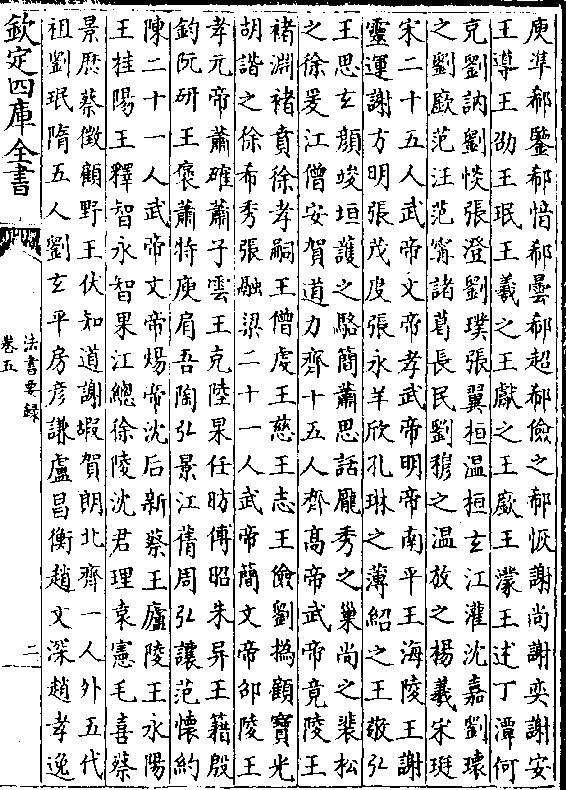 庾準郗鑒郗愔郗曇郗超郗儉之郗恢謝尚謝奕謝安
王導王劭王珉王羲之王獻之王廞王濛王述丁潭何
克劉訥劉惔張澄劉璞張翼桓温桓玄江灌沈嘉劉瓌
之劉廞范汪范甯諸葛長民劉穆之温放之楊羲宋珽
宋二十五人武帝文帝孝武帝明帝南平王海陵王謝
靈運謝方明張茂度張永羊欣孔琳之薄紹之王敬弘
王思玄顔竣垣護之駱簡蕭思話龎秀之巢尚之裴松
之徐爰江僧安賀道力齊十五人齊髙帝武帝竟陵王
褚淵褚賁徐孝嗣王僧䖍王慈王志王儉劉撝顧寶光
胡諧之徐希秀張融梁二十一人武帝簡文帝邵陵王
孝元帝蕭確蕭子雲王克陸果任昉傅昭朱异王籍殷
鈞阮研王褒蕭特庾肩吾陶弘景江蒨周弘讓范懷約
陳二十一人武帝文帝煬帝沈后新蔡王廬陵王永陽
王桂陽王釋智永智果江總徐陵沈君理袁憲毛喜蔡
景厯蔡徴顧野王伏知道謝嘏賀朗北齊一人外五代
祖劉珉隋五人劉玄平房彦謙盧昌衡趙文深趙孝逸
欽定四庫全書
法書要録
卷五
二